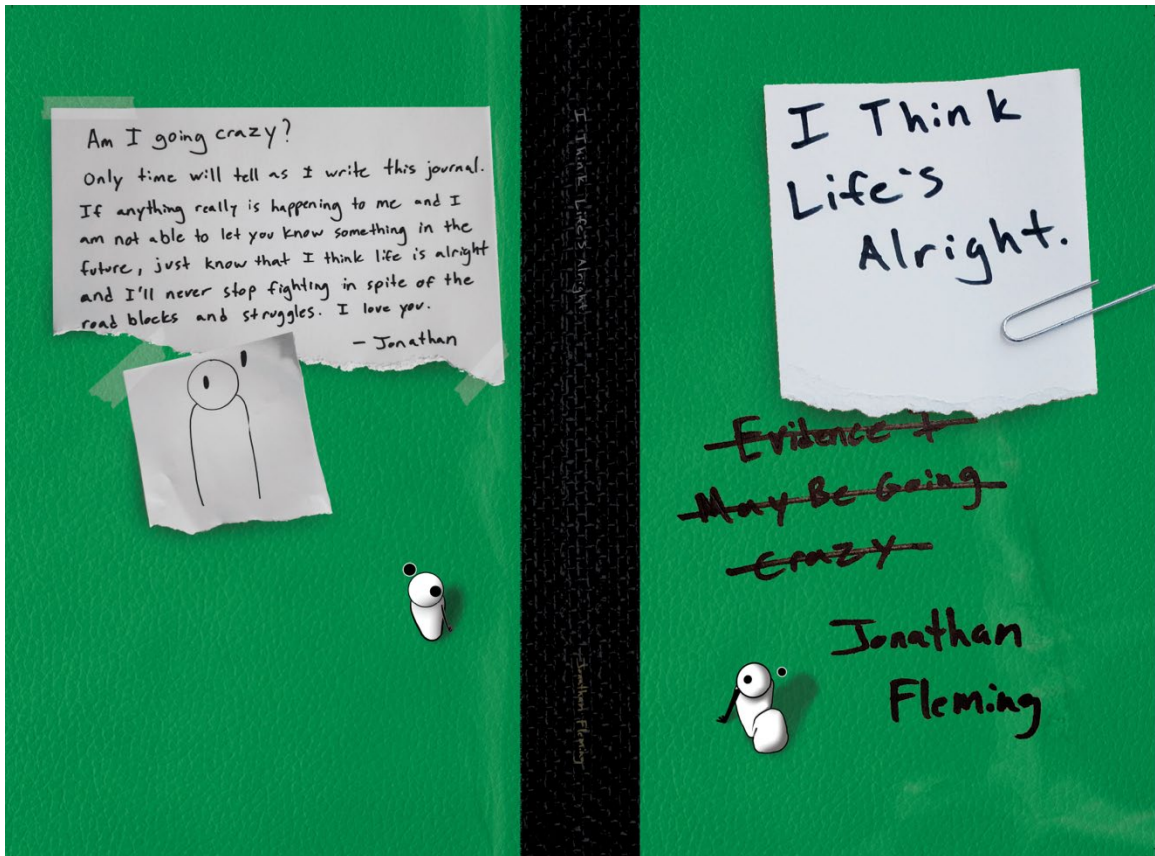 Am I going crazy?
Only time will tell as I write this journal.
If anything really is happening to me and I
am not able to let you know something in the
future, just know that I think life is alright
and I'll never stop fighting in spite of the
road blocks and struggles. I love you.
- Jonathan
I Think Life's Alright.
Jonathan Fleming
I Think
Life's
Alright.
Evidence I
May Be Going
Crazy
Jonathan
Fleming